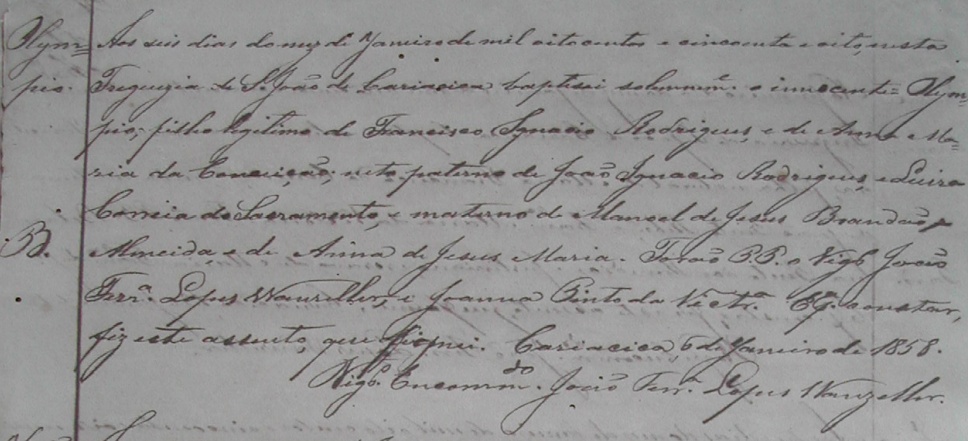 Olym=
pio.
B.
Aos seis dias do mez de Janeiro de mil oitocentos e cincoenta e oito, nesta
Freguezia de S. João de Cariacica baptisei solemnem.e o innocente= Olym=
pio, filho legitimo de Francisco Ignacio Rodrigues, e de Anna Ma=
ria da Conceição; neto paterno de João Ignacio Rodrigues, e Luiza
Correia do Sacramento, e materno de Manoel de Jesus Brandão,
Almeida e de Anna de Jesus Maria. Forão P.P. o Vigr.o João
Ferr.a Lopes Wanzeller, e Joanna Pinto da Vict.a E p.a constar,
fiz este assento, que firmei. Cariacica, 6 de Janeiro de 1858.
Vigr.o Encomm.do João Ferr.a Lopes Wanzeller.